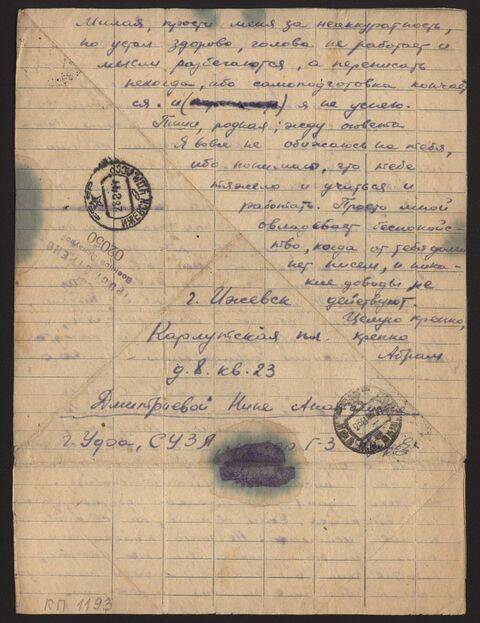 Милая, прости меня за неаккуратность,
но устал здорово, голова не работает и
мысли разбегаются, а переписать
некогда, ибо самоподготовка кончает
ся. и я не успею.
Пиши, родная; жду ответа
Я вовсе не обижаюсь на тебя,
ибо понимаю, что тебе
тяжело и учиться и
работать. Просто мной
овладевает беспокойс-
тво, когда от тебя долго
нет писем, и ника-
кие доводы не
действуют.
Целую крепко,
крепко
Абрам
ИЖЕВСК
02030
г. Ижевск
Карлутская пл.
д. 8. кв. 23
Дмитриевой Нине
г. Уфа, СУЗЛ Г-3
КП 1193